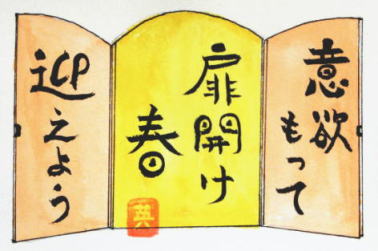 意欲
もって
扉開け
春
迎えよう
英